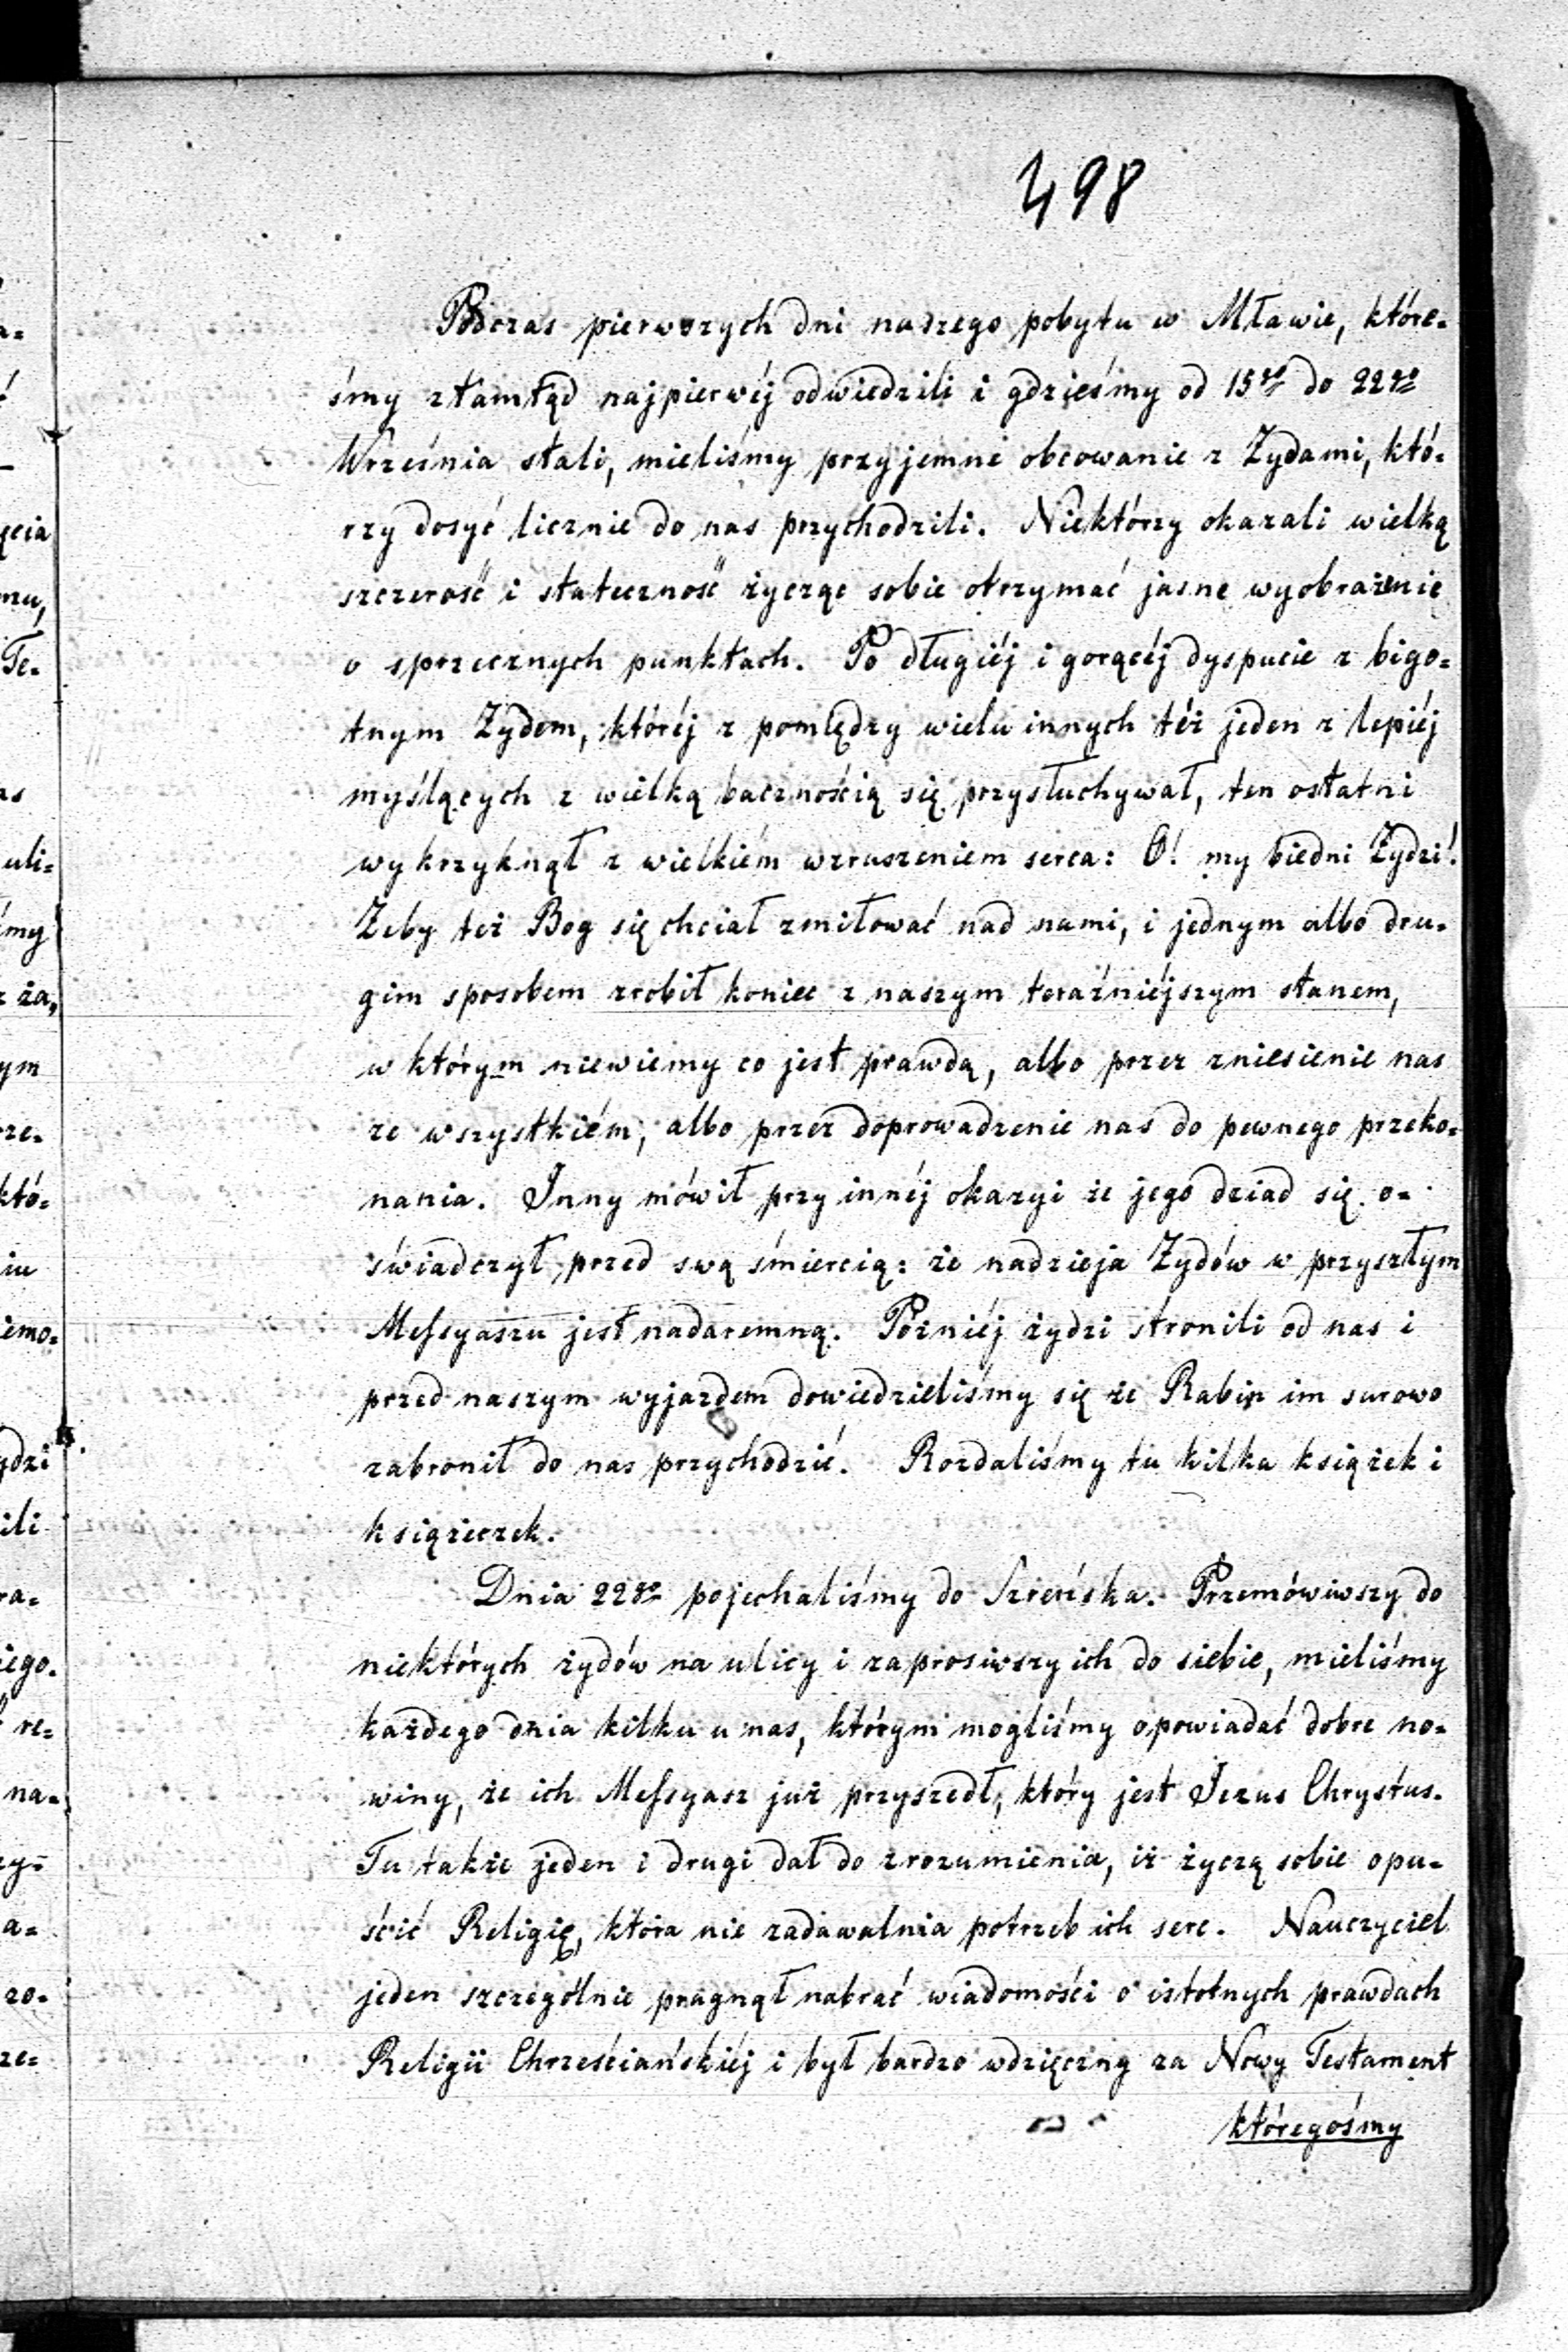 498
Podczas pierwszych dni naszego pobytu w Mławie, które-
śmy ztamtąd najpierwéj odwiedzili i gdzieśmy od 15go do 22go
Września stali, mieliśmy przyjemne obcowanie z Żydami, któ-
rzy dosyć licznie do nas przychodzili. Niektórzy okazali wielką
szczerość i stateczność życząc sobie otrzymać jasne wyobrażenie
o sprzecznych punktach. Po długiéj i gorącéj dyspucie z bigo-
tnym Żydem, któréj z pomiędzy wielu innych téż jeden z lepiéj
myślących z wielką bacznością się przysłuchywał, ten ostatni
wykrzyknął z wielkiém wzruszeniem serca: O! my biedni Żydzi!
Żeby też Bog się chciał zmiłować nad nami, i jednym albo dru-
gim sposobem zrobił koniec z naszym teraźniéjszym stanem,
w którym niewiemy co jest prawdą, albo przez zniesienie nas
ze wszystkiém, albo przez doprowadzenie nas do pewnego przeko-
nania. Inny mówił przy innéj okazyi że jego dziad się o-
świadczył przed swą śmiercią: że nadzieja Żydów w przyszłym
Mefsyaszu jest nadaremną. Pozniéj żydzi stronili od nas i
przed naszym wyjazdem dowiedzieliśmy się że Rabin im surowo
zabronił do nas przychodzić. Rozdaliśmy tu kilka książek i
książeczek.
Dnia 22go pojechaliśmy do Szreńska. Przemówiwszy do
niektórych żydów na ulicy i zaprosiwszy ich do siebie, mieliśmy
każdego dnia kilku u nas, którym mogliśmy opowiadać dobre no-
winy, że ich Mefsyasz już przyszedł, który jest Jezus Chrystus.
Tu także jeden i drugi dał do zrozumienia, iż życzą sobie opu-
ścić Religię, która nie zadawalnia potrzeb ich serc. Nauczyciel
jeden szczególnie pragnął nabrać wiadomości o istotnych prawdach
Religii Chrześciańskiéj i był bardzo wdzięczny za Nowy Testament
któregośmy